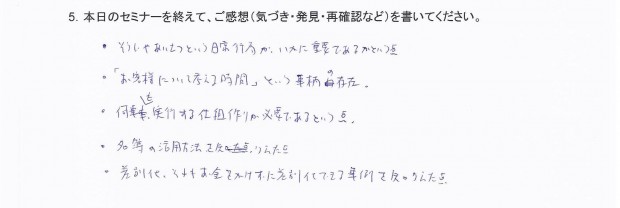 5. 本日のセミナーを終えて、ご感想(気づき・発見・再確認など)を書いてください。
・そうじやあいさつという日常行為が、いかに重要であるかという点
・「お客様について考える時間」という事柄の存在。
・何事も実行する仕組作りが必要であるという点。
・名簿の活用方法を知りえた点
・差別化、それもお金をかけずに差別化できる事例を知りえた点